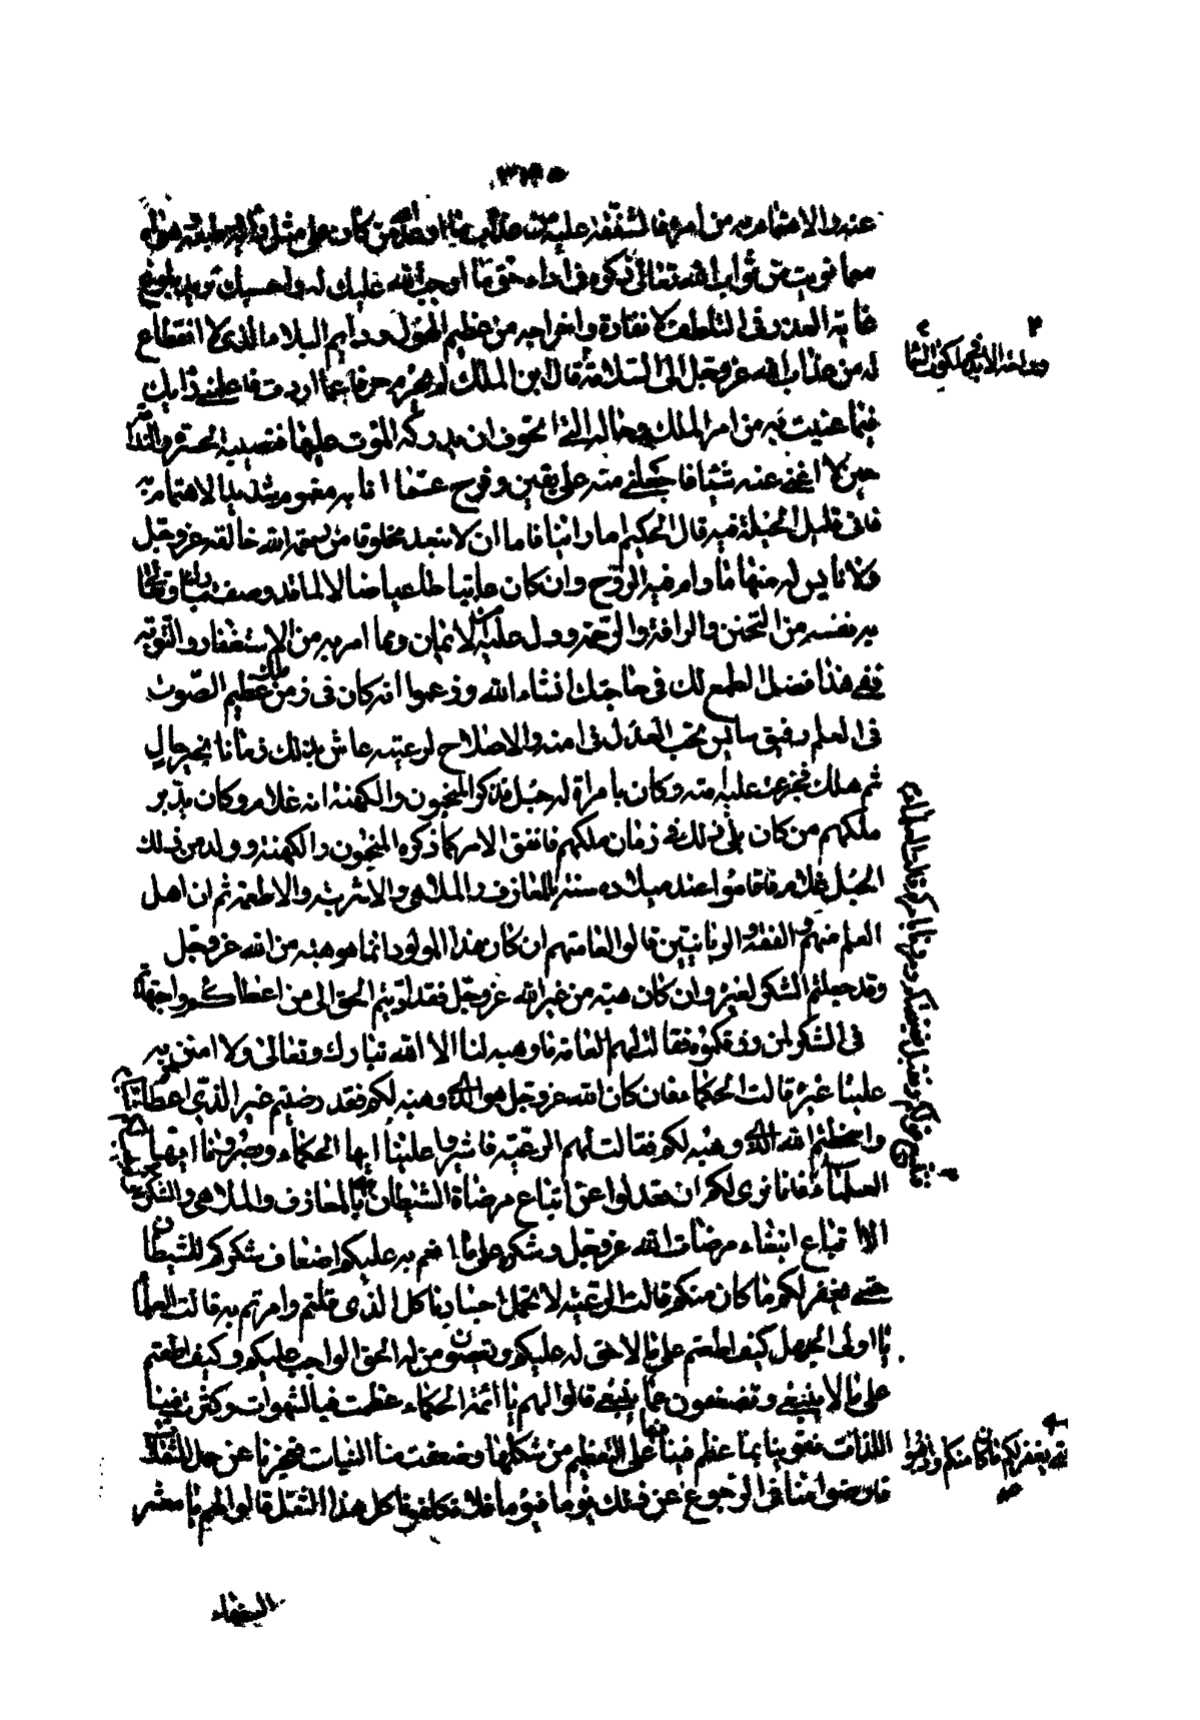 عنه والاهتمام به من أمره فالشفقة عليه
مما نويت من ثواب الله تعالى ذكره فى أداء حق ما أوجب الله عليك له وأحسبك تريد بلوغ
غاية العذر فى التلطف لانقاذه وإخراجه من عظيم الهول ودايم البلاء الذى لا انقطاع
له من عذاب الله عز وجل الى السلامة قال ابن الملك لم تجرم حرفا عما اردت فاعلمنى رأيك
فيما عنيت به من امر الملك وحاله التى اتخوف ان يدركه الموت عليها فتصيبه الحسرة والندامة
حين لا اغنى عنه شيئا فاجعلنى منه على يقين وفرج عما انا به مغموم شديد الاهتمام به
فانى قليل الحيلة فيه قال الحكيم اما رأينا فاما ان لا نبعد مخلوقا من رحمة الله خالقه عز وجل
ولا نايس له منها ما دام فيه الروح وان كان عاتيا طاغيا ضالا لما قد وصف ربنا تبارك وتعالى
به نفسه من التحنن والرأفة والرحمة ودل عليه من الايمان وما امر به من الاستغفار والتوبة
وفى هذا فضل الطمع لك فى حاجتك انشاء الله وزعموا انه كان فى زمن ملك عظيم الصوت
فى العلم رفيق سايس يحب العدل فى امته والاصلاح لرعيته عاش بذلك زمانا بخير حال
ثم هلك فجزعت عليه امته وكان بامراة له حبل فذكر المنجمون والكهنة انه غلام وكان يدبر
ملكهم من كان يلى ذلك فى زمان ملكهم فاتفق الامر كما ذكره المنجمون والكهنة وولد من ذلك
الحبل غلام فاقاموا عند ميلاده سنة بالمعازف والملاهى والاشربة والاطعمة ثم ان اهل
العلم منهم والفقه والربانيين قالوا لعامتهم ان كان هذا المولود انما هو هبة من الله عز وجل
وقد جعلتم الشكر لغيره وان كان هبة من غير الله عز وجل فقد اديتم الحق الى من اعطاكموه واجتهدتم
فى الشكر لمن رزقكموه فقالت لهم العامة ما وهبه لنا الا الله تبارك وتعالى ولا امتن به
علينا غيره قالت الحكماء فان كان الله عز وجل هو الذى وهبه لكم فقد رضيتم غير الذى اعطاكم
واسخطتم الله الذى وهبه لكم فقالت لهم الرعية فاشيروا علينا ايها الحكماء وبصرونا ايها
العلماء فانا نرى لكم ان تعدلوا عن اتباع مرضاة الشيطان بالمعازف والملاهى والسكر
الا اتباع ابتغاء مرضات الله عز وجل وشكره على ما انعم به عليكم اضعاف شكركم للشيطان
حتى يغفر لكم ما كان منكم قالت الرعية لا تحمل اجسادنا كل الذى قلتم وامرتم به قالت العلماء
يا اولى الجهل كيف اطعتم على ما لا حق له عليكم وتعصون من له الحق الواجب عليكم وكيف اطعتم
على ما لا ينبغى وتضعفون عما ينبغى قالوا لهم يا ائمة الحكماء عظمت فينا الشهوات وكثرت فينا
اللذات فقوينا بما عظم فينا منها على العظيم من شكلها وضعفت منا النيات فعجزنا عن حمل المثقلات
فارضوا منا فى الرجوع عن ذلك يوما فيوما فلا تكلفونا كل هذا الثقل قالوا لهم يا معشر
السفهاء